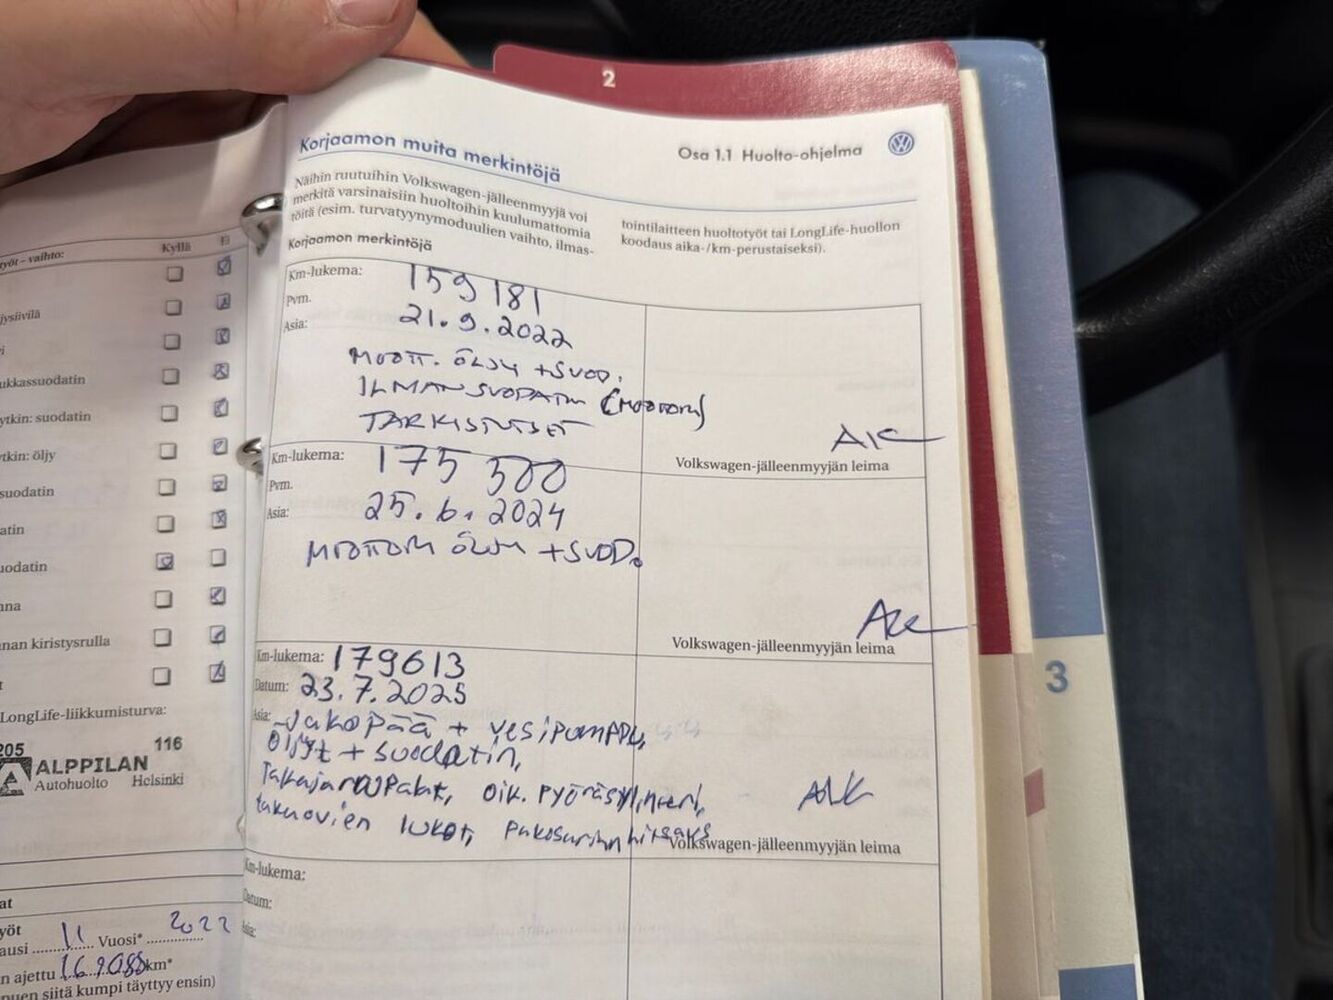 2
Korjaamon muita merkintöjä
Osa 1.1 Huolto-ohjelma
Näihin ruutuihin Volkswagen-jälleenmyyjä voi
merkitä varsinaisiin huoltoihin kuulumattomia
töitä (esim. turvatyynymoduulien vaihto, ilmas-
tointilaitteen huoltotyöt tai LongLife-huollon
koodaus aika-/km-perustaiseksi).
Korjaamon merkintöjä
Km-lukema: 159 181
Pvm. 21.9.2022
Asia:
MOOTT. ÖLJY + SUOD.
ILMANSUODATIN (MOOTTORI)
TARKISTUKSET
AK
Volkswagen-jälleenmyyjän leima
Km-lukema: 175 500
Pvm.
Asia: 25.6.2024
MOOTTORI ÖLJY + SUOD.
Volkswagen-jälleenmyyjän leima
Km-lukema: 179613
Datum: 23.7.2025
Asia: Jakopää + vesipumppu,
Öljyt + suodatin,
Takajarrupalat, oik. pyöräsylinteri,
takaovien lukot, pakosarjan hitsaus
Volkswagen-jälleenmyyjän leima
Km-lukema:
Datum:
Asia:
yöt – vaihto: Kyllä Ei
jysiivilä
i
ukkassuodatin
ytkin: suodatin
tkin: öljy
suodatin
atin
uodatin
nna
nnan kiristysrulla
t
LongLife-liikkumisturva:
205 116
ALPPILAN
Autohuolto Helsinki
at
yöt
ausi 11 Vuosi* 2022
n ajettu km*
puen siitä kumpi täyttyy ensin)
3